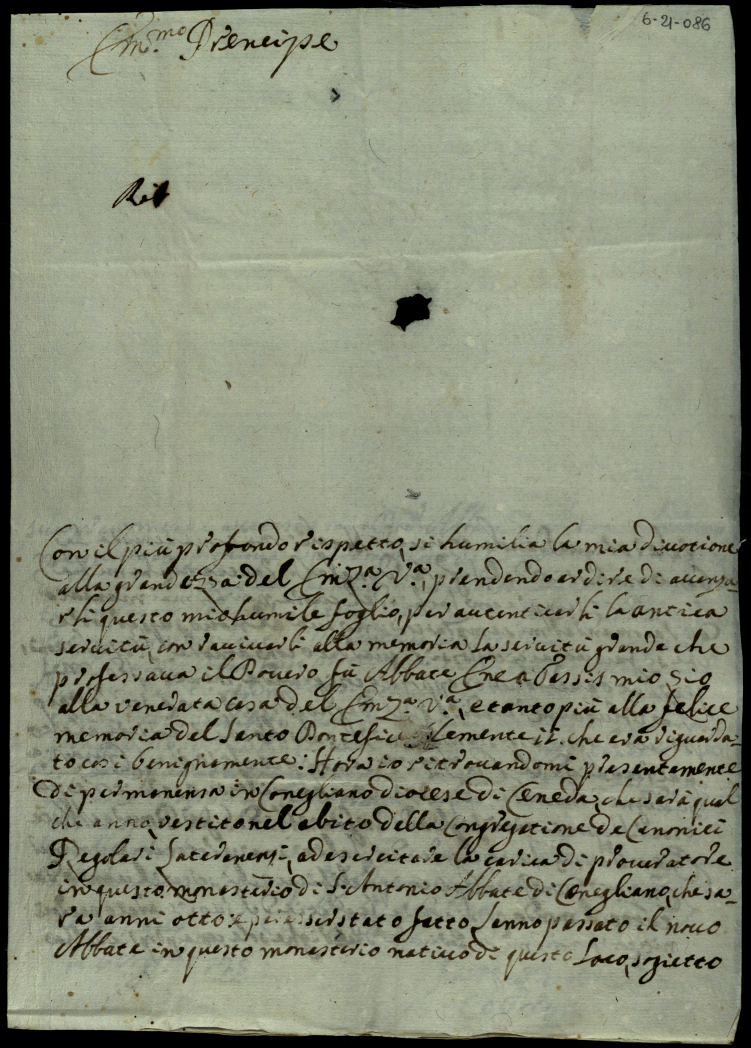 6-21-086
Em.mo Prencipe
Con il più profondo rispetto, si humilia la mia divotione
alla grandezza del Em.za V.a, prendendo ardire di avanza-
rli questo mio humile foglio, per autenticarli la antica
servitù, con ravivarli alla memoria la servitù grande che
professava il Povero fù Abbate Enea mio zio
alla venerata casa del Em.za V.a, e tanto più alla felice
memoria del Santo Pontefice Clemente che era riguarda-
to così benignamente: Hora io ritrovandomi presentemente
di permanensa in Conegliano diocese di Ceneda, che sarà qual
che anno, vestito nel abito della Congregatione de Canonici
Regolari Lateranensi, ad esercitare la carica di procuratore
in questo monasterio di S. Antonio Abbate di Conegliano, che sa-
ra anni otto e poi esser stato fatto l'anno passato il novo
Abbate in questo monasterio nativo di questo Loco, sogietto